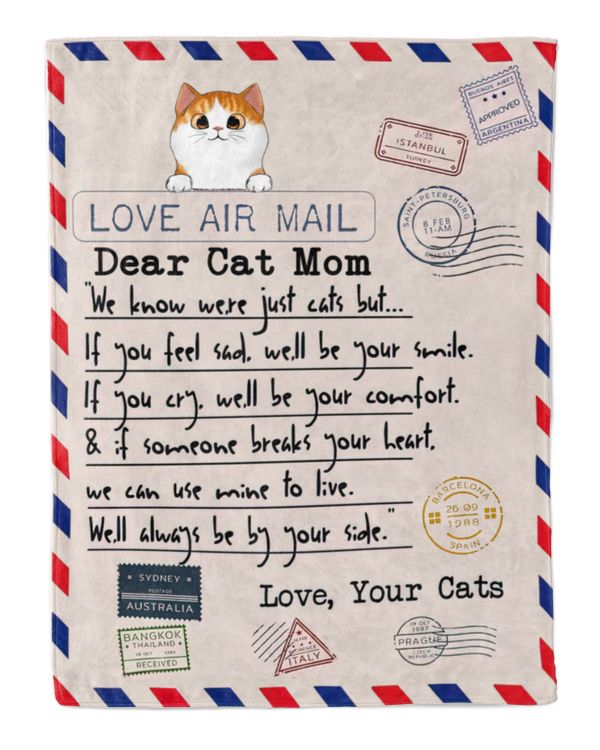 BUENOS AIRES
APPROVED
ARGENTINA
ISTANBUL
TURKEY
SAINT-PETERSBURG
8 FEB
11-AM
RUSSIA
LOVE AIR MAIL
Dear Cat Mom
"We know we,re just cats but...
If you feel sad, we,ll be your smile.
If you cry, we,ll be your comfort.
& if someone breaks your heart,
we can use mine to live.
We,ll always be by your side."
BARCELONA
26 09
1988
SPAIN
Love, Your Cats
SYDNEY
POSTAGE
AUSTRALIA
BANGKOK
THAILAND
RECEIVED
ITALY
19 OCT
1987
PRAGUE
CZECH
REPUBLIC